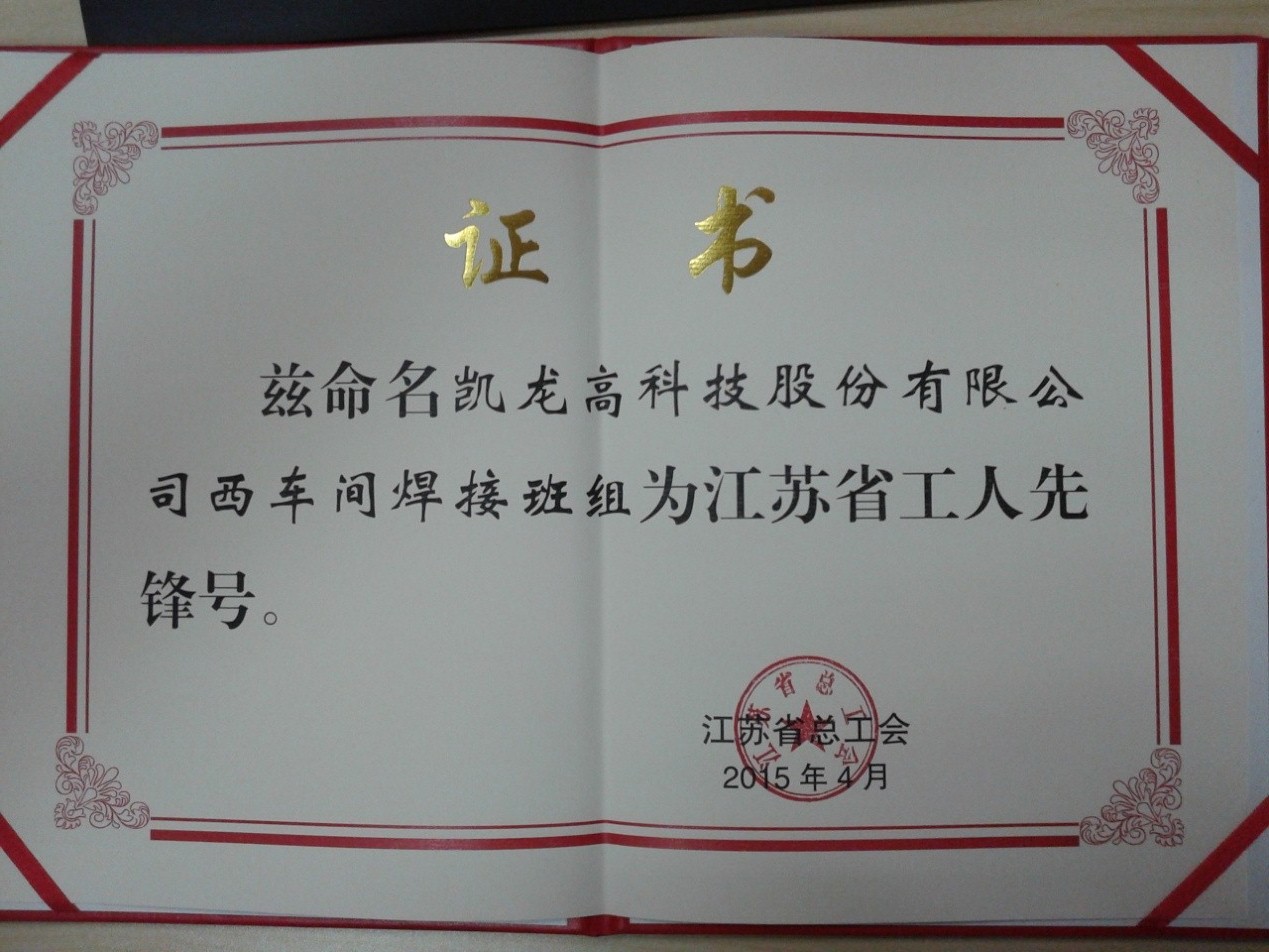 证 书
兹命名凯龙高科技股份有限公
司西车间焊接班组为江苏省工人先
锋号。
江苏省总工会
江苏省总工会
2015年4月